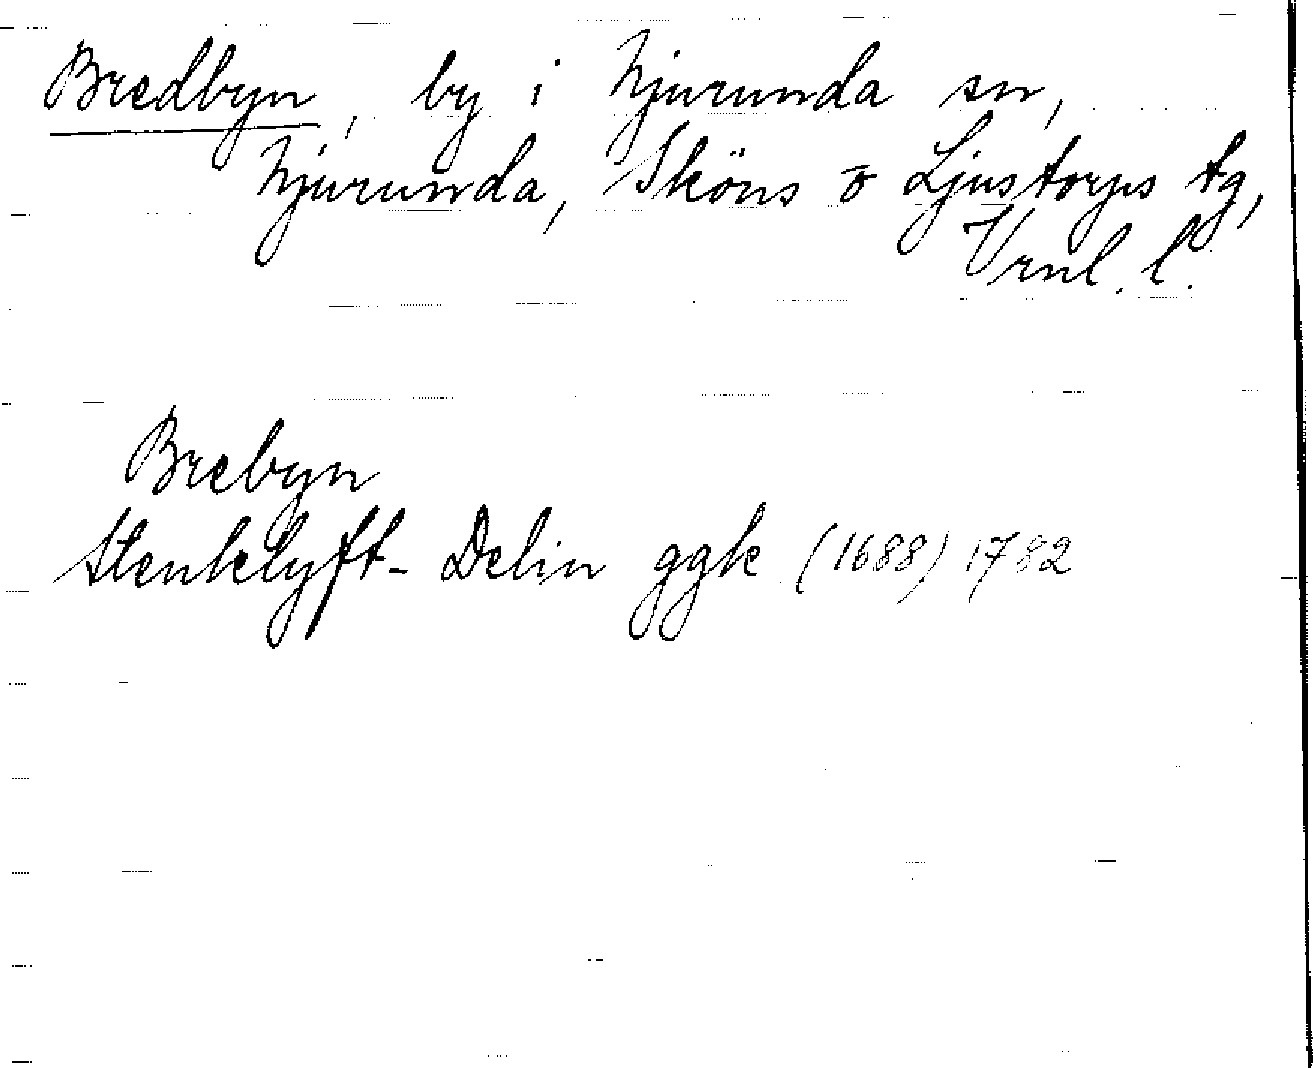 Bredbyn, by i Njurunda sn,
Njurunda, Sköns o Ljustorps tg,
Vrnl. l.
Brebyn
Stenklyft- Delin ggk (1688) 1782